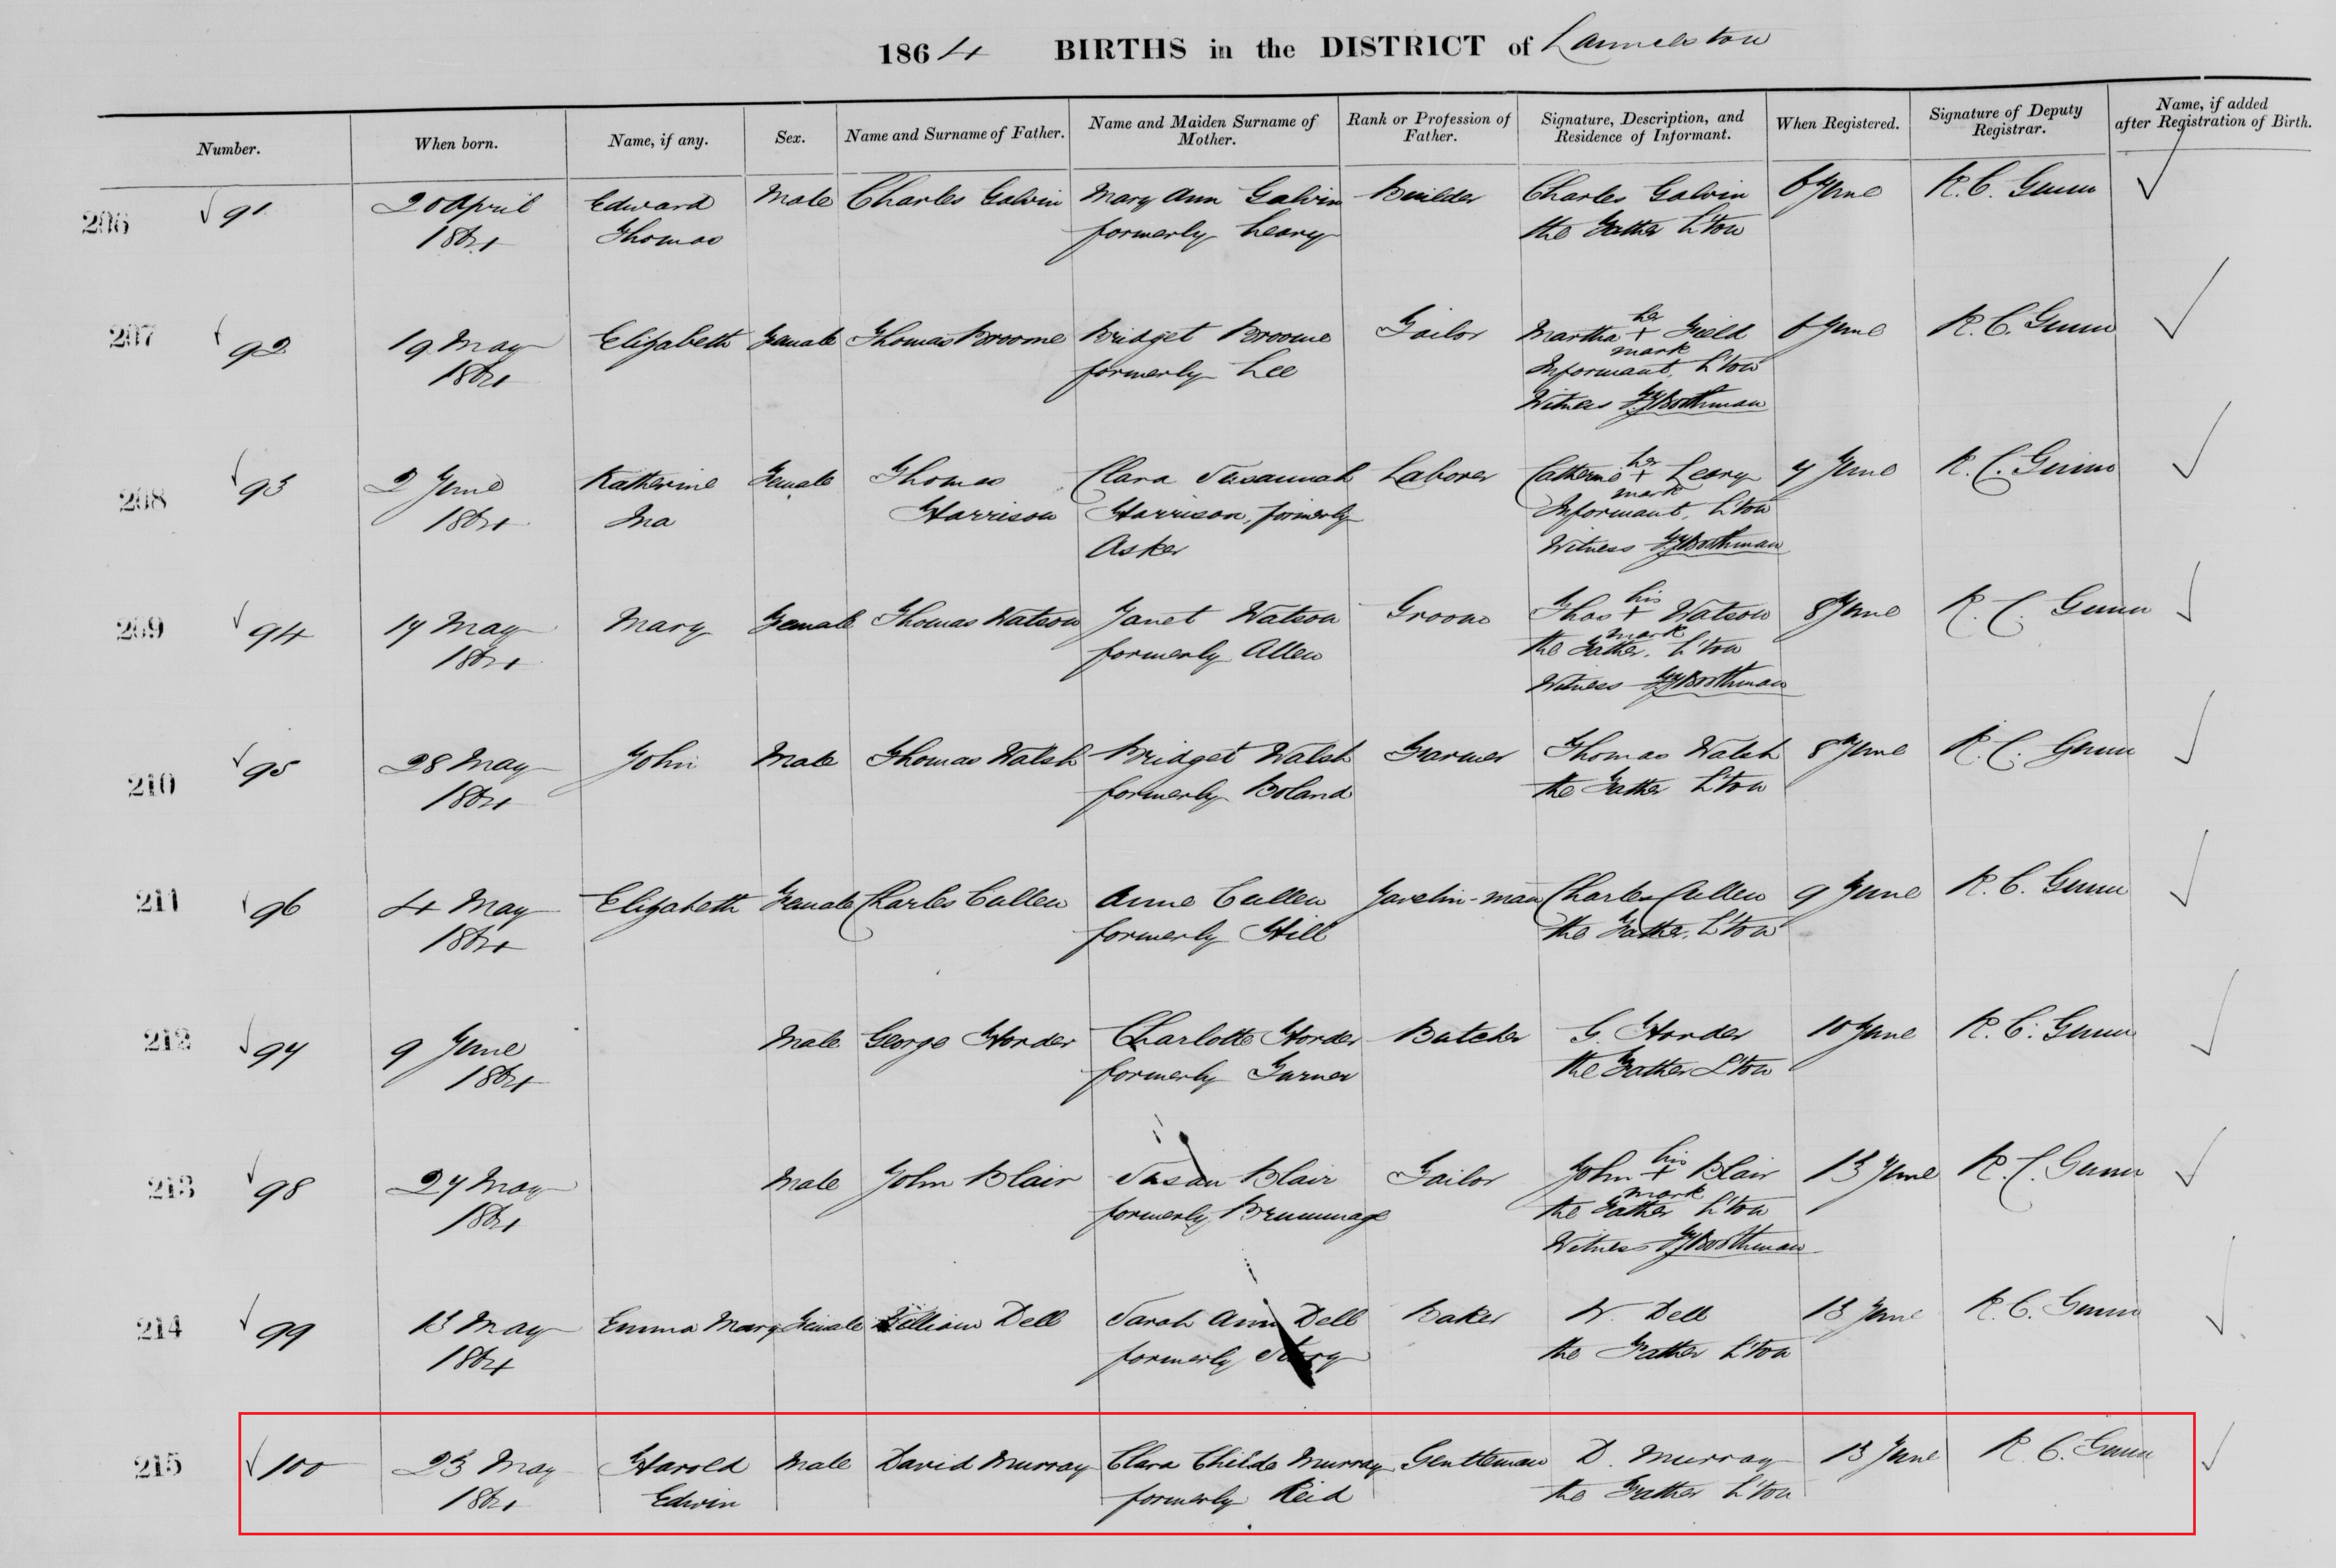 1864 BIRTHS in the DISTRICT of Launceston
Number. When born. Name, if any. Sex. Name and Surname of Father. Name and Maiden Surname of Mother. Rank or Profession of Father. Signature, Description, and Residence of Informant. When Registered. Signature of Deputy Registrar. Name, if added after Registration of Birth.
206 √ 91 20 April Edward Male Charles Galvin Mary Ann Galvin Builder Charles Galvin 6 June R. C. Gunn √
1864 Thomas formerly Leary the Father L'ton
207 √ 92 19 May Elizabeth Female Thomas Broome Bridget Broome Tailor Martha her + mark Field 6 June R. C. Gunn √
1864 formerly Lee Informant, L'ton
Witness Boothman
208 √ 93 2 June Katherine Female Thomas Clara Susannah Laborer Catherine her + mark Leary 7 June R. C. Gunn √
1864 Ina Harrison Harrison, formerly Informant, L'ton
Asker Witness Boothman
209 √ 94 17 May Mary Female Thomas Watson Janet Watson Groom Thos his + mark Watson 8 June R. C. Gunn √
1864 formerly Allen the Father, L'ton
Witness Boothman
210 √ 95 28 May John Male Thomas Walsh Bridget Walsh Farmer Thomas Walsh 8 June R. C. Gunn √
1864 formerly Boland the Father L'ton
211 √ 96 4 May Elizabeth Female Charles Cullen Anne Cullen Javelin-man Charles Cullen 9 June R. C. Gunn √
1864 formerly Hill the Father, L'ton
212 √ 97 9 June Male George Horder Charlotte Horder Butcher G. Horder 10 June R. C. Gunn √
1864 formerly Turner the Father L'ton
213 √ 98 27 May Male John Blair Susan Blair Tailor John his + mark Blair 13 June R. C. Gunn √
1864 formerly Brummage the Father L'ton
Witness Boothman
214 √ 99 13 May Emma Mary Female William Dell Sarah Ann Dell Baker W. Dell 13 June R. C. Gunn √
1864 formerly the Father L'ton
215 √ 100 23 May Harold Male David Murray Clara Childe Murray Gentleman D. Murray 13 June R. C. Gunn √
1864 Edwin formerly Reid the Father L'ton